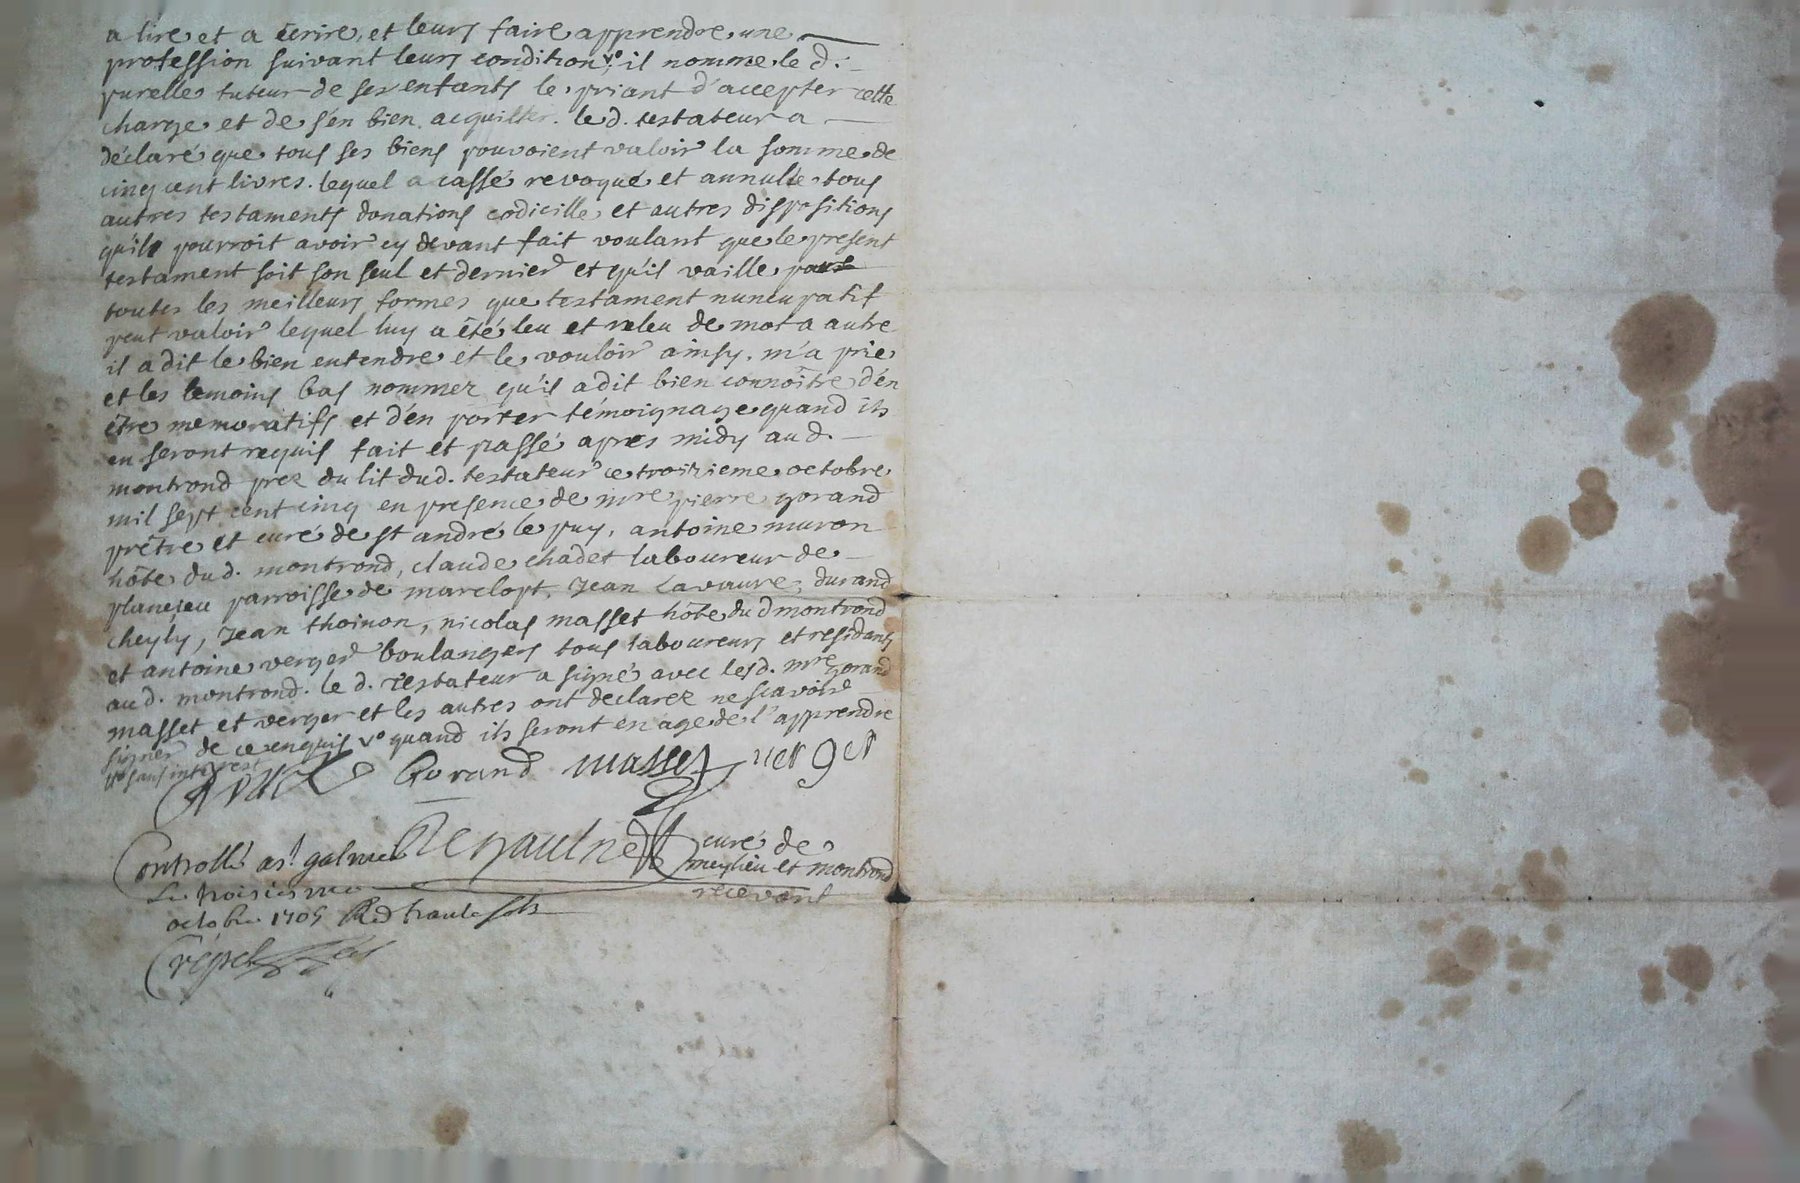 a lire et a écrire, et leurs faire apprendre une
profession suivant leurs condition v° il nomme le d.
purelle tuteur de ses enfants le priant d'accepter cette
charge et de s'en bien acquitter. le d. testateur a
déclaré que tous ses biens pouvoient valoir la somme de
cinq cent livres. lequel a cassé revoqué et annullé tous
autres testaments donations codicille et autres dispositions
quil pourroit avoir cy devant fait voulant que le present
testament soit son seul et dernier et qu'il vaille par
toutes les meilleurs formes que testament nuncupatif
peut valoir lequel luy a été leu et releu de mot a autre
il a dit le bien entendre et le vouloir ainsy. m'a prié
et les temoins bas nommez qu'il a dit bien connoître d'en
être memoratifs et d'en porter témoignage quand ils
en seront requis fait et passé apres midy au d.
montrond prez du lit dud. testateur ce troisieme octobre
mil sept cent cinq en presence de mre pierre gorand
prêtre et curé de st andré le puy, antoine muron
hôte dud. montrond, claude chadet laboureur de
plancieu parroisse de marclopt, Jean Lavaure, durand
cheyly, Jean thoinon, nicolas masset hôte du d montrond
et antoine verger boulangers tous laboureurs et residants
aud. montrond. le d. testateur a signé avec lesd. mre gorand
masset et verger et les autres ont declarez ne scavoir
signer de ce enquis v° quand ils seront en age de l'apprendre
v° sans interest
Gorand masset verger
Renauld curé de
Controllé a st galmier meylieu et montrond
Le troisieme recevant
octobre 1705 Red sols